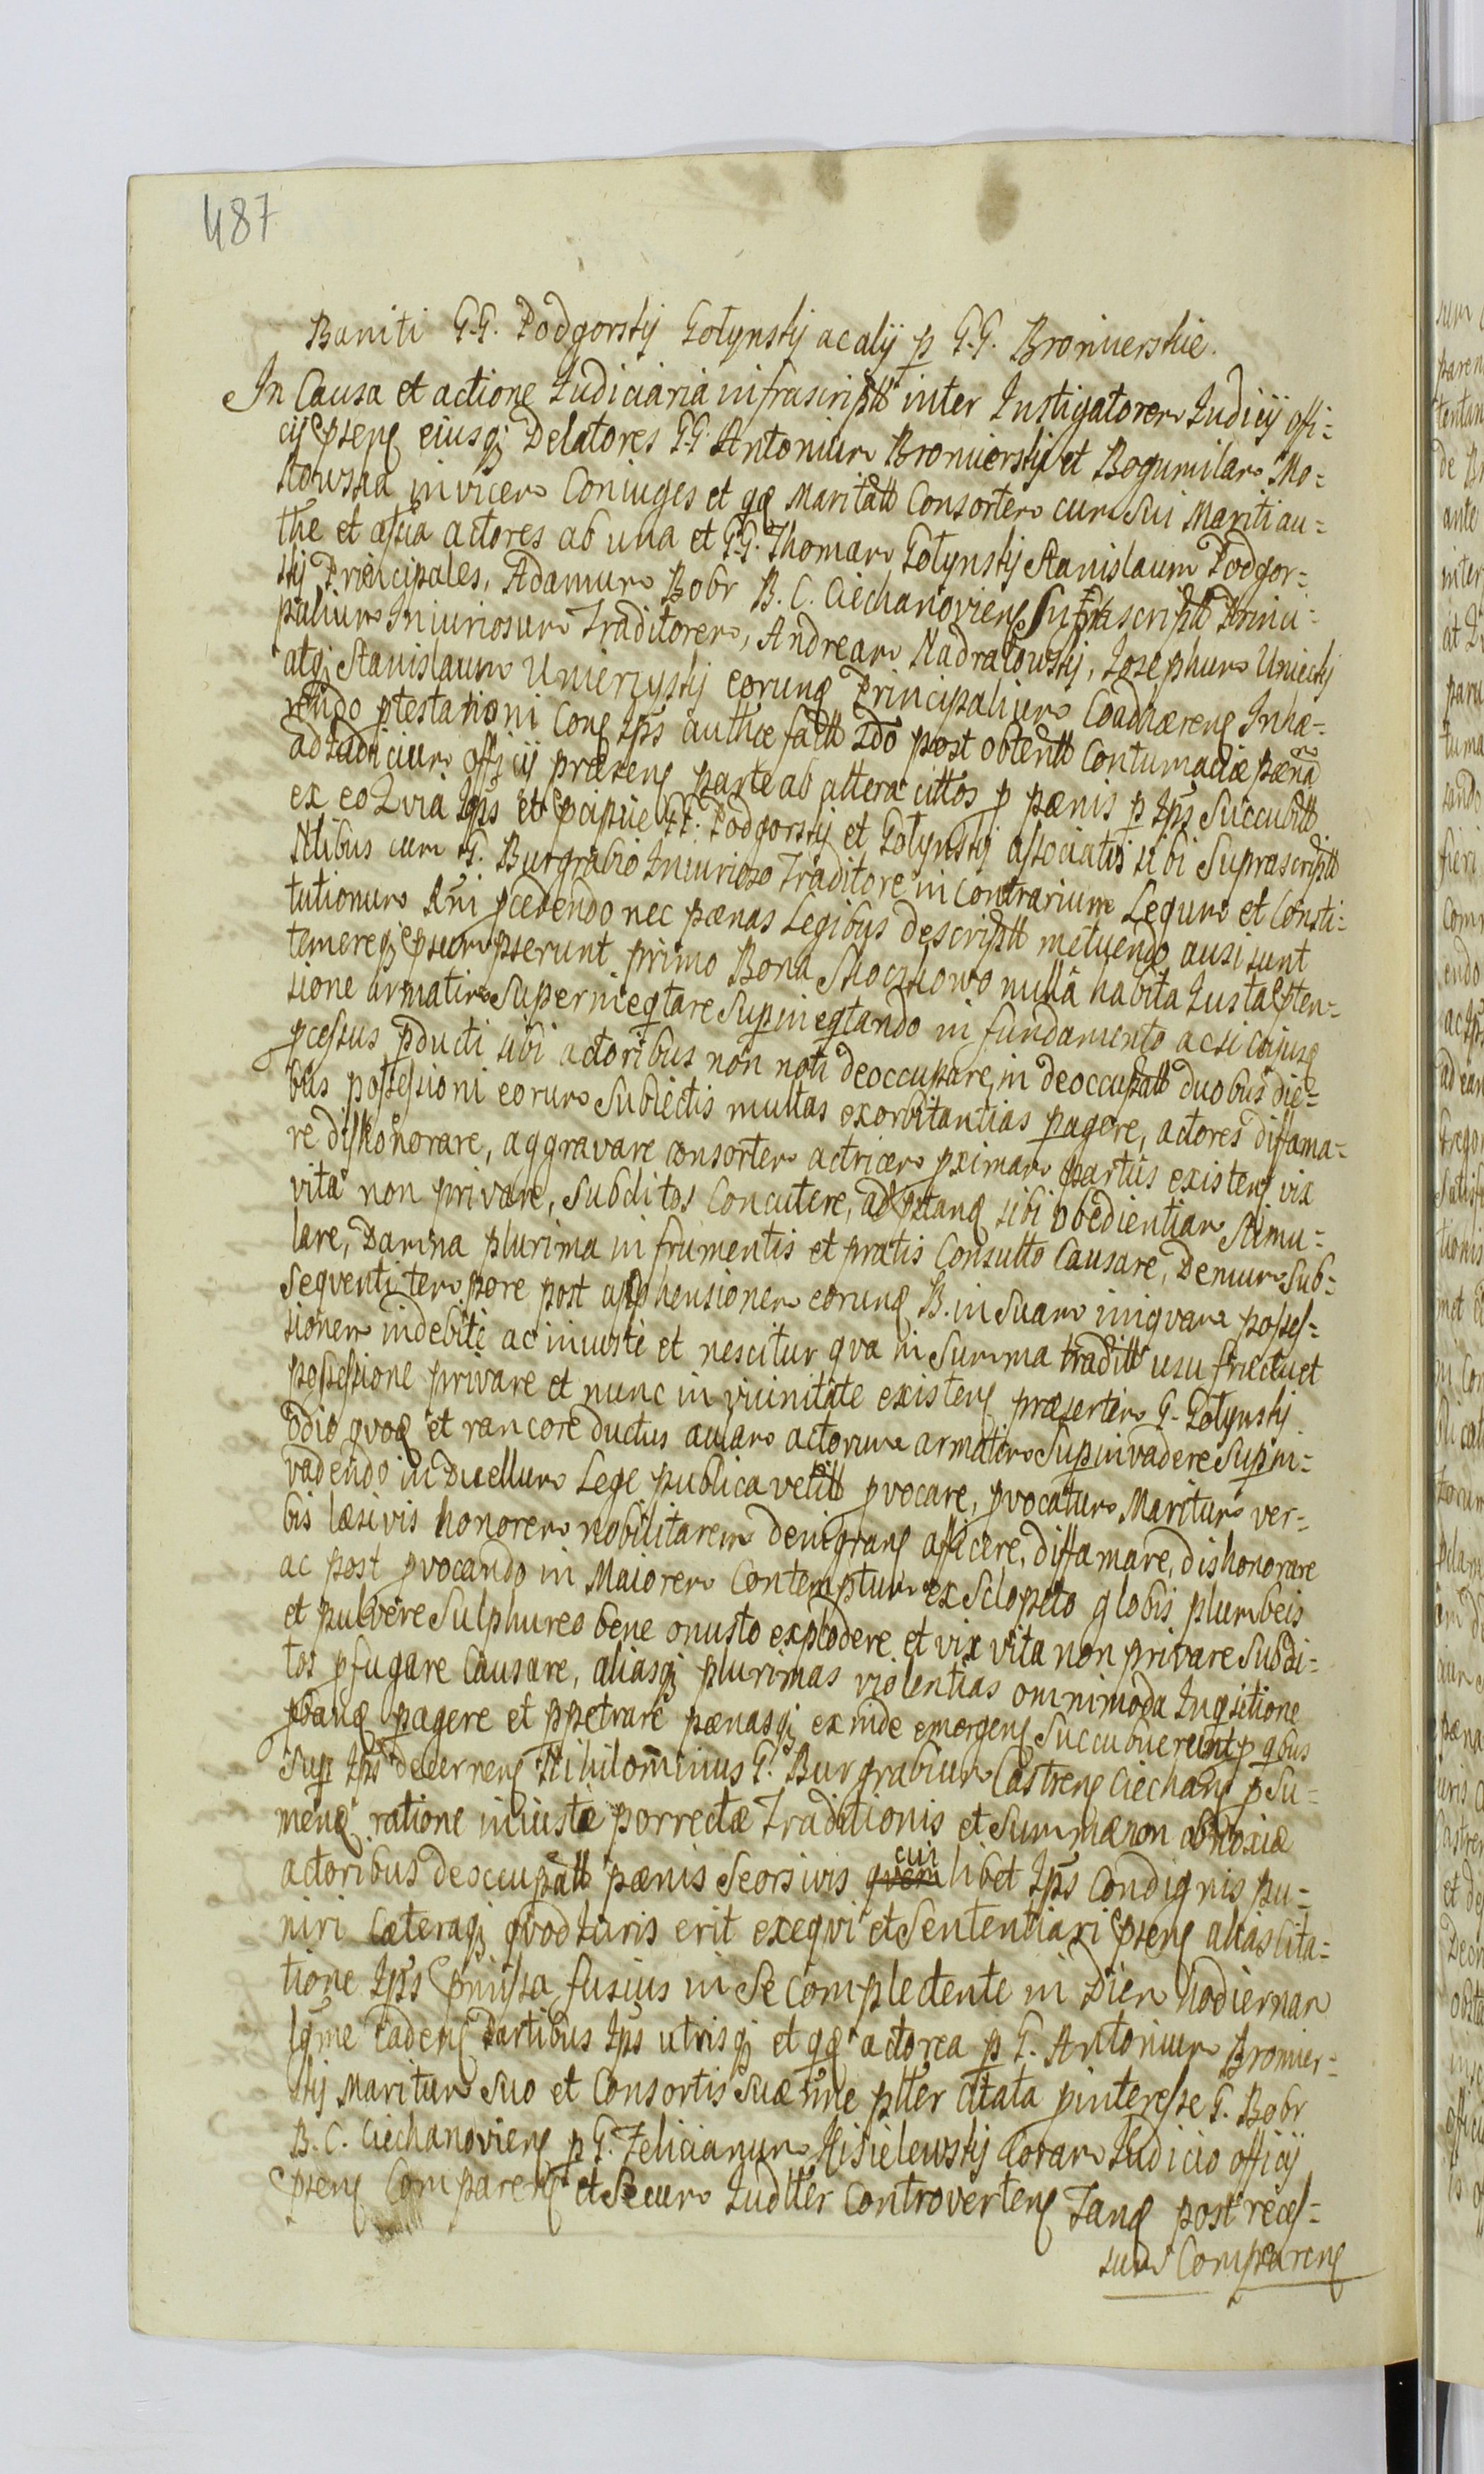 487
Baniti G.G. Podgorskij Gołynskij ac alij p G.G. Bromierskie.
In Causa et actione Iudiciaria infrascriptt inter Instigatorem Iudicij offi=
cij psens eiusq Delatores G.G. Antonium Bromierskij et Bogumilam Mo=
stowska invicem Coniuges et qq Maritatt Consortem cum Sui Mariti au=
the et assia actores ab una et G.G. Thomam Gołynskij Stanislaum Podgor=
skij Principales, Adamum Bobr B. C. Ciechanoviens Suprascriptt Princi=
palium Iniuriosum Traditorem, Andream Nadratowskij, Iosephum Uniecki
atq Stanislaum Umierzyskij eorunq Principalium Coadhærens Inhæ=
rendo ptestationi Cone Ips authæ factt 2do post obtentt Contumaciæ pænam
ad Iudicium officij præsens parte ab altera cittos p pænis p Ips Succubitt
ex eo Quia Ips et pcipue G.G. Podgorskij et Gołynskij associatis sibi Suprascriptt
Nlibus cum G. Burgrabio Iniurioso Traditore in Contrarium Legum et Consti=
tutionum Rni pcedendo nec pænas Legibus descriptt metuendo ausi sunt
temereq psumpserunt primo Bona Skoczkowo nulla habita Iusta pten=
sione armatim Supernieqtare Supinieqtando in fundamento acsi Cuiusq
pcessus pducti sibi actoribus non noti deoccupare, in deoccupatt duobus die=
bus possessioni eorum Subiectis multas exorbitantias pagere, actores diffama=
re dishonorare, aggravare consortem actricem pximam partus existens vix
vita non privare, Subditos Concutere, ad pstanq sibi obedientiam Stimu=
lare, Damna plurima in frumentis et pratis Consulto Causare, Demum Sub=
seqventi tempore post apphensionem eorunq B. in Suam iniqvam posses=
sionem indebite ac iniuste et nescitur qva in Summa traditt usu fructu et
possessione privare et nunc in vicinitate existens præsertim G. Gołynskij
odio qvoq et rancore ductus aulam actorum armatim Supinvadere Supin=
vadendo in Duellum Lege publica vetitt pvocare, pvocatum Maritum ver=
bis læsivis honorem nobilitarem denigrans afficere, diffamare, dishonorare
ac post pvocando in Maiorem Contemptum ex Sclopeto globis plumbeis
et pulvere Sulphureo bene onusto explodere et vix vita non privare Subdi=
tos pfugare Causare, aliasq plurimas violentias omnimoda Inqsitione
pbanq pagere et ppetrare pænasq exinde emergens Succubuerunt p qbus
Sup Ips decernens Nihilominus G. Burgrabium Castrens Ciechans p Su=
menq ratione iniustæ porrectæ Traditionis et Summæ non obnoxiæ
actoribus deoccupatt pænis Seorsivis cui libet Ips Condignis pu=
niri Cæteraq qvod Iuris erit exeqvi et Sententiari psens alias Cita=
tione Ips pmissa fusius in Se Complectente in Diem hodiernam
lgme Cadens Partibus Ips utrisq et qq actorea p G. Antonium Bromier=
skij Maritum Suo et Consortis Suæ nne ptter Citata pinteresse G. Bobr
B. C. Ciechanoviens p G. Felicianum Kisielewskij Coram Iudicio officij
psens Comparens et Secum Iudtter Controvertens Tanq post reces=
sum Comparens